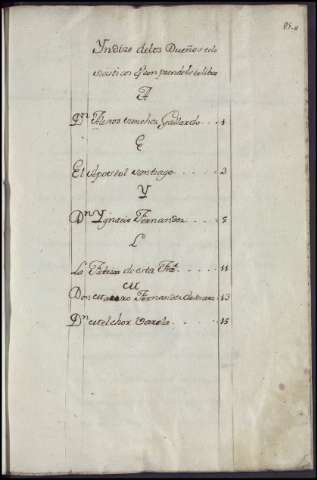 Yndize de los Dueños de lo
qe compreende este libro
A
Dn Alonso Sanchez Gallardo . . . 1
E
El Apostol Santiago . . . . . 3
Y
Dn Ygnacio Fernandez . . . 5
L
La Fabrica de esta . . . . 11
M
Don Fernandez . . 13
Dn Melchor Varela . . . . . 15